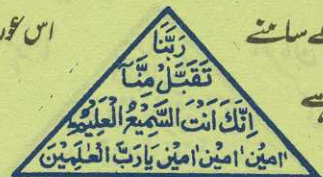 اس
کے سامنے
سے
رَبَّنَا
تَقَبَّلْ مِنَّآ
اِنَّكَ اَنْتَ السَّمِيْعُ الْعَلِيْمُ
اٰمِيْن اٰمِيْن اٰمِيْن يَا رَبَّ الْعٰلَمِيْنَ